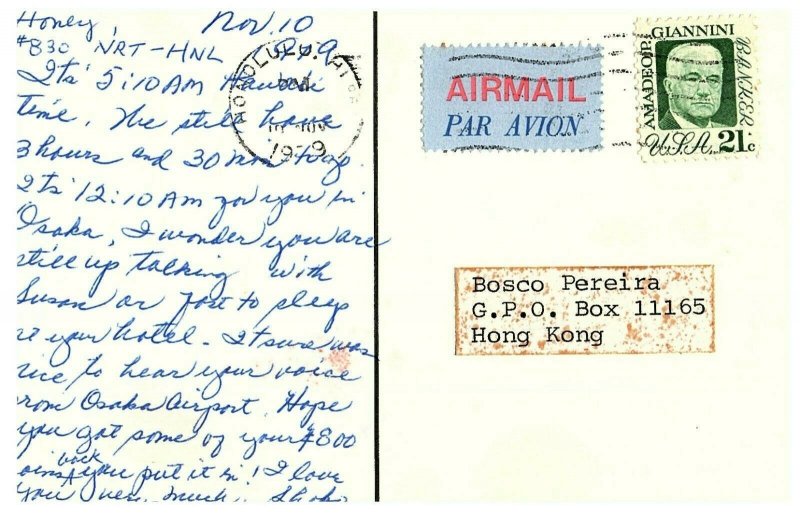 Honey, Nov. 10
#830 NRT-HNL
Its 5:10 AM Hawaii
time. We still have
3 hours and 30 min to go.
Its 12:10 AM for you in
Osaka, I wonder you are
still up talking with
Susan or fast to sleep
at your hotel. It sure was
nice to hear your voice
from Osaka Airport. Hope
you got some of your ¥800
coins back you put it in! I love
you very much.
HONOLULU, HI
PM
1979
AIRMAIL
PAR AVION
AMADEO P. GIANNINI
BANKER
U.S.A. 21c
Bosco Pereira
G.P.O. Box 11165
Hong Kong